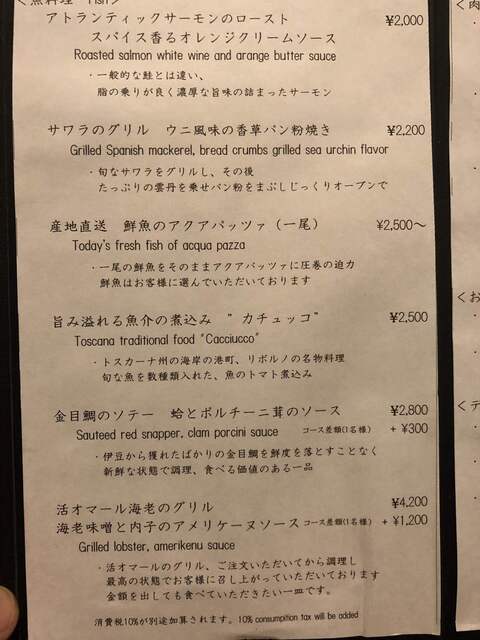 ＜魚料理 Fish＞
アトランティックサーモンのロースト ¥2,000
スパイス香るオレンジクリームソース
Roasted salmon white wine and arange butter sauce
・一般的な鮭とは違い、
脂の乗りが良く濃厚な旨味の詰まったサーモン
サワラのグリル ウニ風味の香草パン粉焼き ¥2,200
Grilled Spanish mackerel, bread crumbs grilled sea urchin flavor
・旬なサワラをグリルし、その後
たっぷりの雲丹を乗せパン粉をまぶしじっくりオーブンで
産地直送 鮮魚のアクアパッツァ（一尾） ¥2,500～
Today's fresh fish of acqua pazza
・一尾の鮮魚をそのままアクアパッツァに圧巻の迫力
鮮魚はお客様に選んでいただいております
旨み溢れる魚介の煮込み "カチュッコ" ¥2,500
Toscana traditional food "Cacciucco"
・トスカーナ州の海岸の港町、リボルノの名物料理
旬な魚を数種類入れた、魚のトマト煮込み
金目鯛のソテー 蛤とポルチーニ茸のソース ¥2,800
Sauteed red snapper, clam porcini sauce コース差額(1名様) + ¥300
・伊豆から獲れたばかりの金目鯛を鮮度を落とすことなく
新鮮な状態で調理、食べる価値のある一品
活オマール海老のグリル ¥4,200
海老味噌と内子のアメリケーヌソース コース差額(1名様) + ¥1,200
Grilled lobster, amerikenu sauce
・活オマールのグリル、ご注文いただいてから調理し
最高の状態でお客様に召し上がっていただいております
金額を出しても食べていただきたい一皿です。
消費税10%が別途加算されます。10% consumpition tax will be added
＜肉
＜お
＜デ